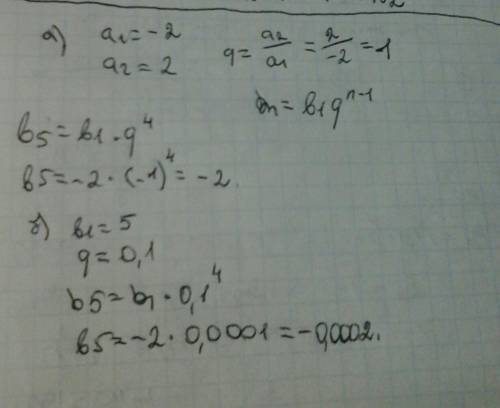 а) a1 = -2
a2 = 2
q = a2/a1 = 2/-2 = 1
bn = b1 q^n-1
b5 = b1 · q^4
b5 = -2 · (-1)^4 = -2.
б) b1 = 5
q = 0,1
b5 = b1 · 0,1^4
b5 = -2 · 0,0001 = -0,0002.